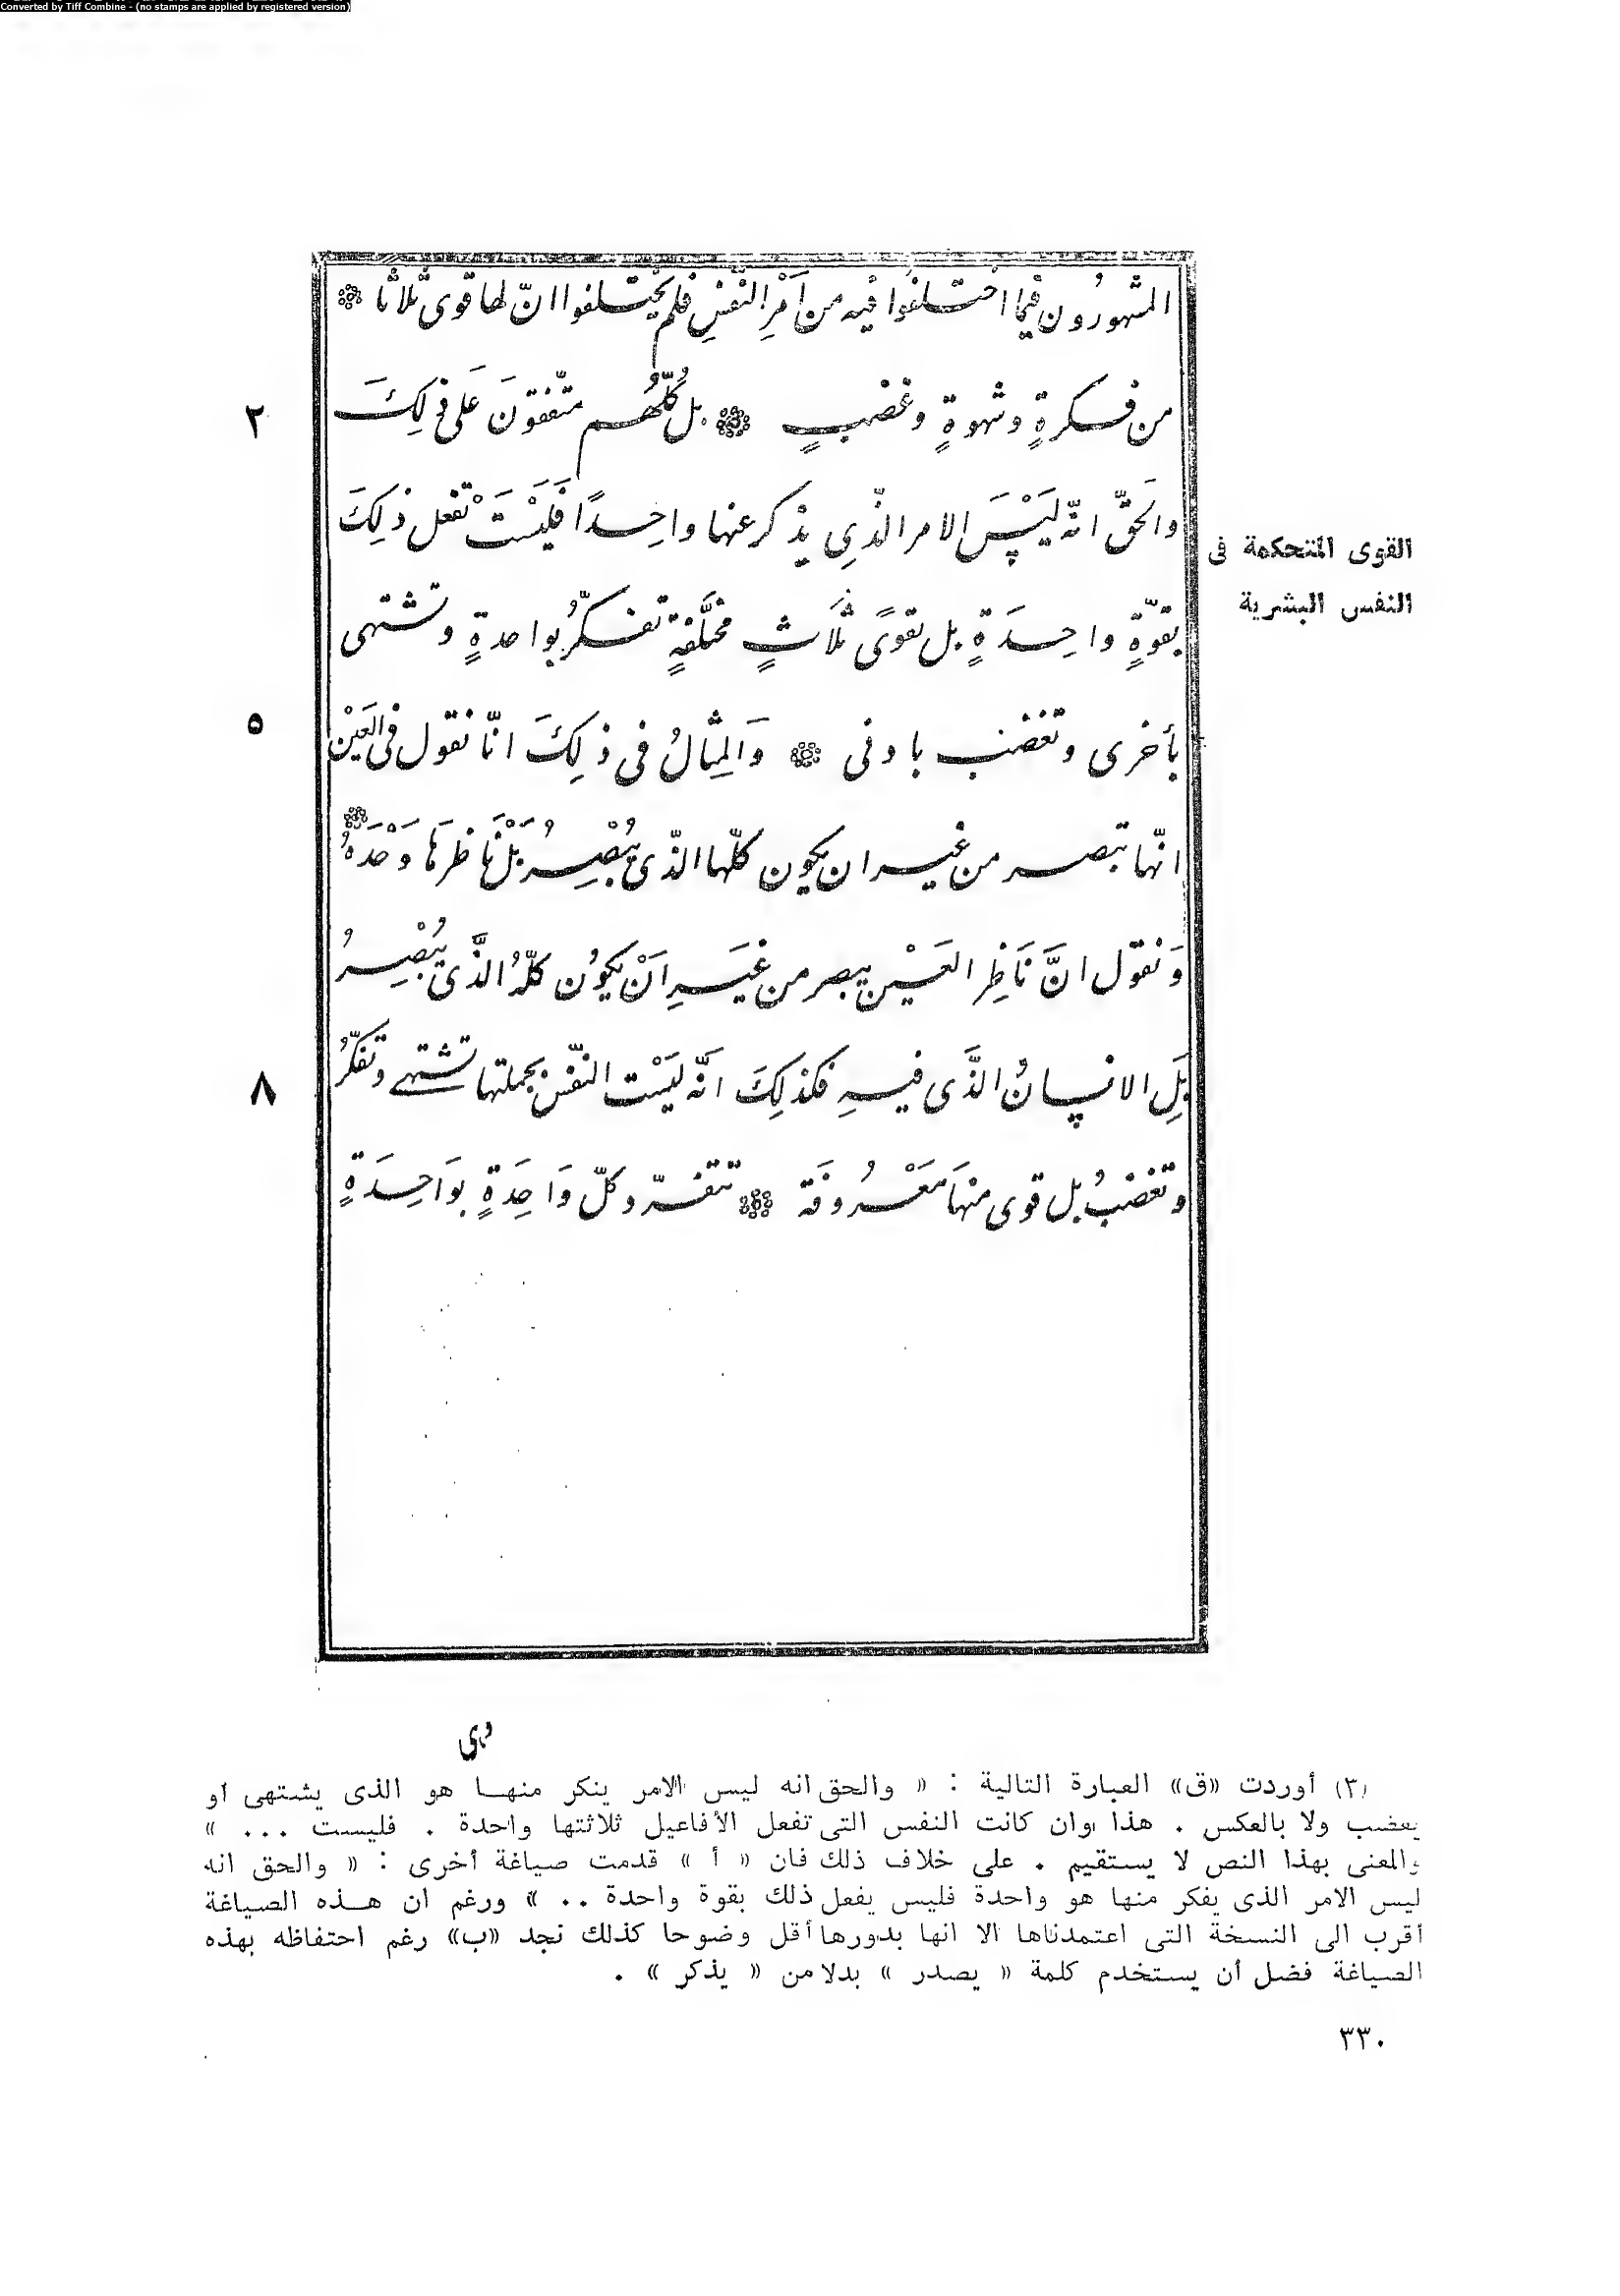 Converted by Tiff Combine - (no stamps are applied by registered version)
المشهورُون فيما اختلفوا فيه من اَمْرِ النَّفسِ فلم يختلفوا انّ لها قوى ثلاثا
٢
من فكرةٍ وشهوةٍ وغضبٍ بل كُلّهُم متّفقونَ عَلى ذلِكَ
والحَقّ انّه لَيْسَ الامر الّذِي يذكر عنها واحِدًا فَلَيْسَتْ تفعل ذلِكَ
القوى المتحكمة فى
النفس البشرية
بقوّةٍ واحِدَةٍ بل بقوىً ثلاثٍ مختَلفةٍ تفكّرُ بواحدةٍ وتشتهى
٥
بأخرى وتغضب باوفى وَالمِثالُ فى ذلِكَ انّا نقول فى العَيْن
انّها تبصر من غير ان يكون كلّها الذّى يُبْصِرُ بَلْ نَاظرهَا وَحْدَهُ
وَنقول انَّ نَاظِر العَيْن يبصر من غَيرِ اَنْ يكوُن كلّهُ الذَّى يُبْصِرُ
٨
بَلِ الانسانُ الذَّى فيهِ فكذلِكَ انَّه لَيْسْت النّفسْ بجملتها تشتهى وتفكّرُ
وتغضبُ بل قوى منهَا مَعْرُوفَة تتفرّد كلّ وَاحِدَةٍ بوَاحِدَةٍ
وهى
(٣) أوردت «ق» العبارة التالية : « والحق انه ليس الامر ينكر منهـا هو الذى يشتهى او
يغضب ولا بالعكس . هذا وان كانت النفس التى تفعل الأفاعيل ثلاثتها واحدة . فليست ... »
والمعنى بهذا النص لا يستقيم . على خلاف ذلك فان « أ » قدمت صياغة أخرى : « والحق انه
ليس الامر الذى يفكر منها هو واحدة فليس يفعل ذلك بقوة واحدة .. » ورغم ان هـذه الصياغة
أقرب الى النسخة التى اعتمدناها الا انها بدورها أقل وضوحا كذلك نجد «ب» رغم احتفاظه بهذه
الصياغة فضل أن يستخدم كلمة « يصدر » بدلا من « يذكر » .
٣٣٠